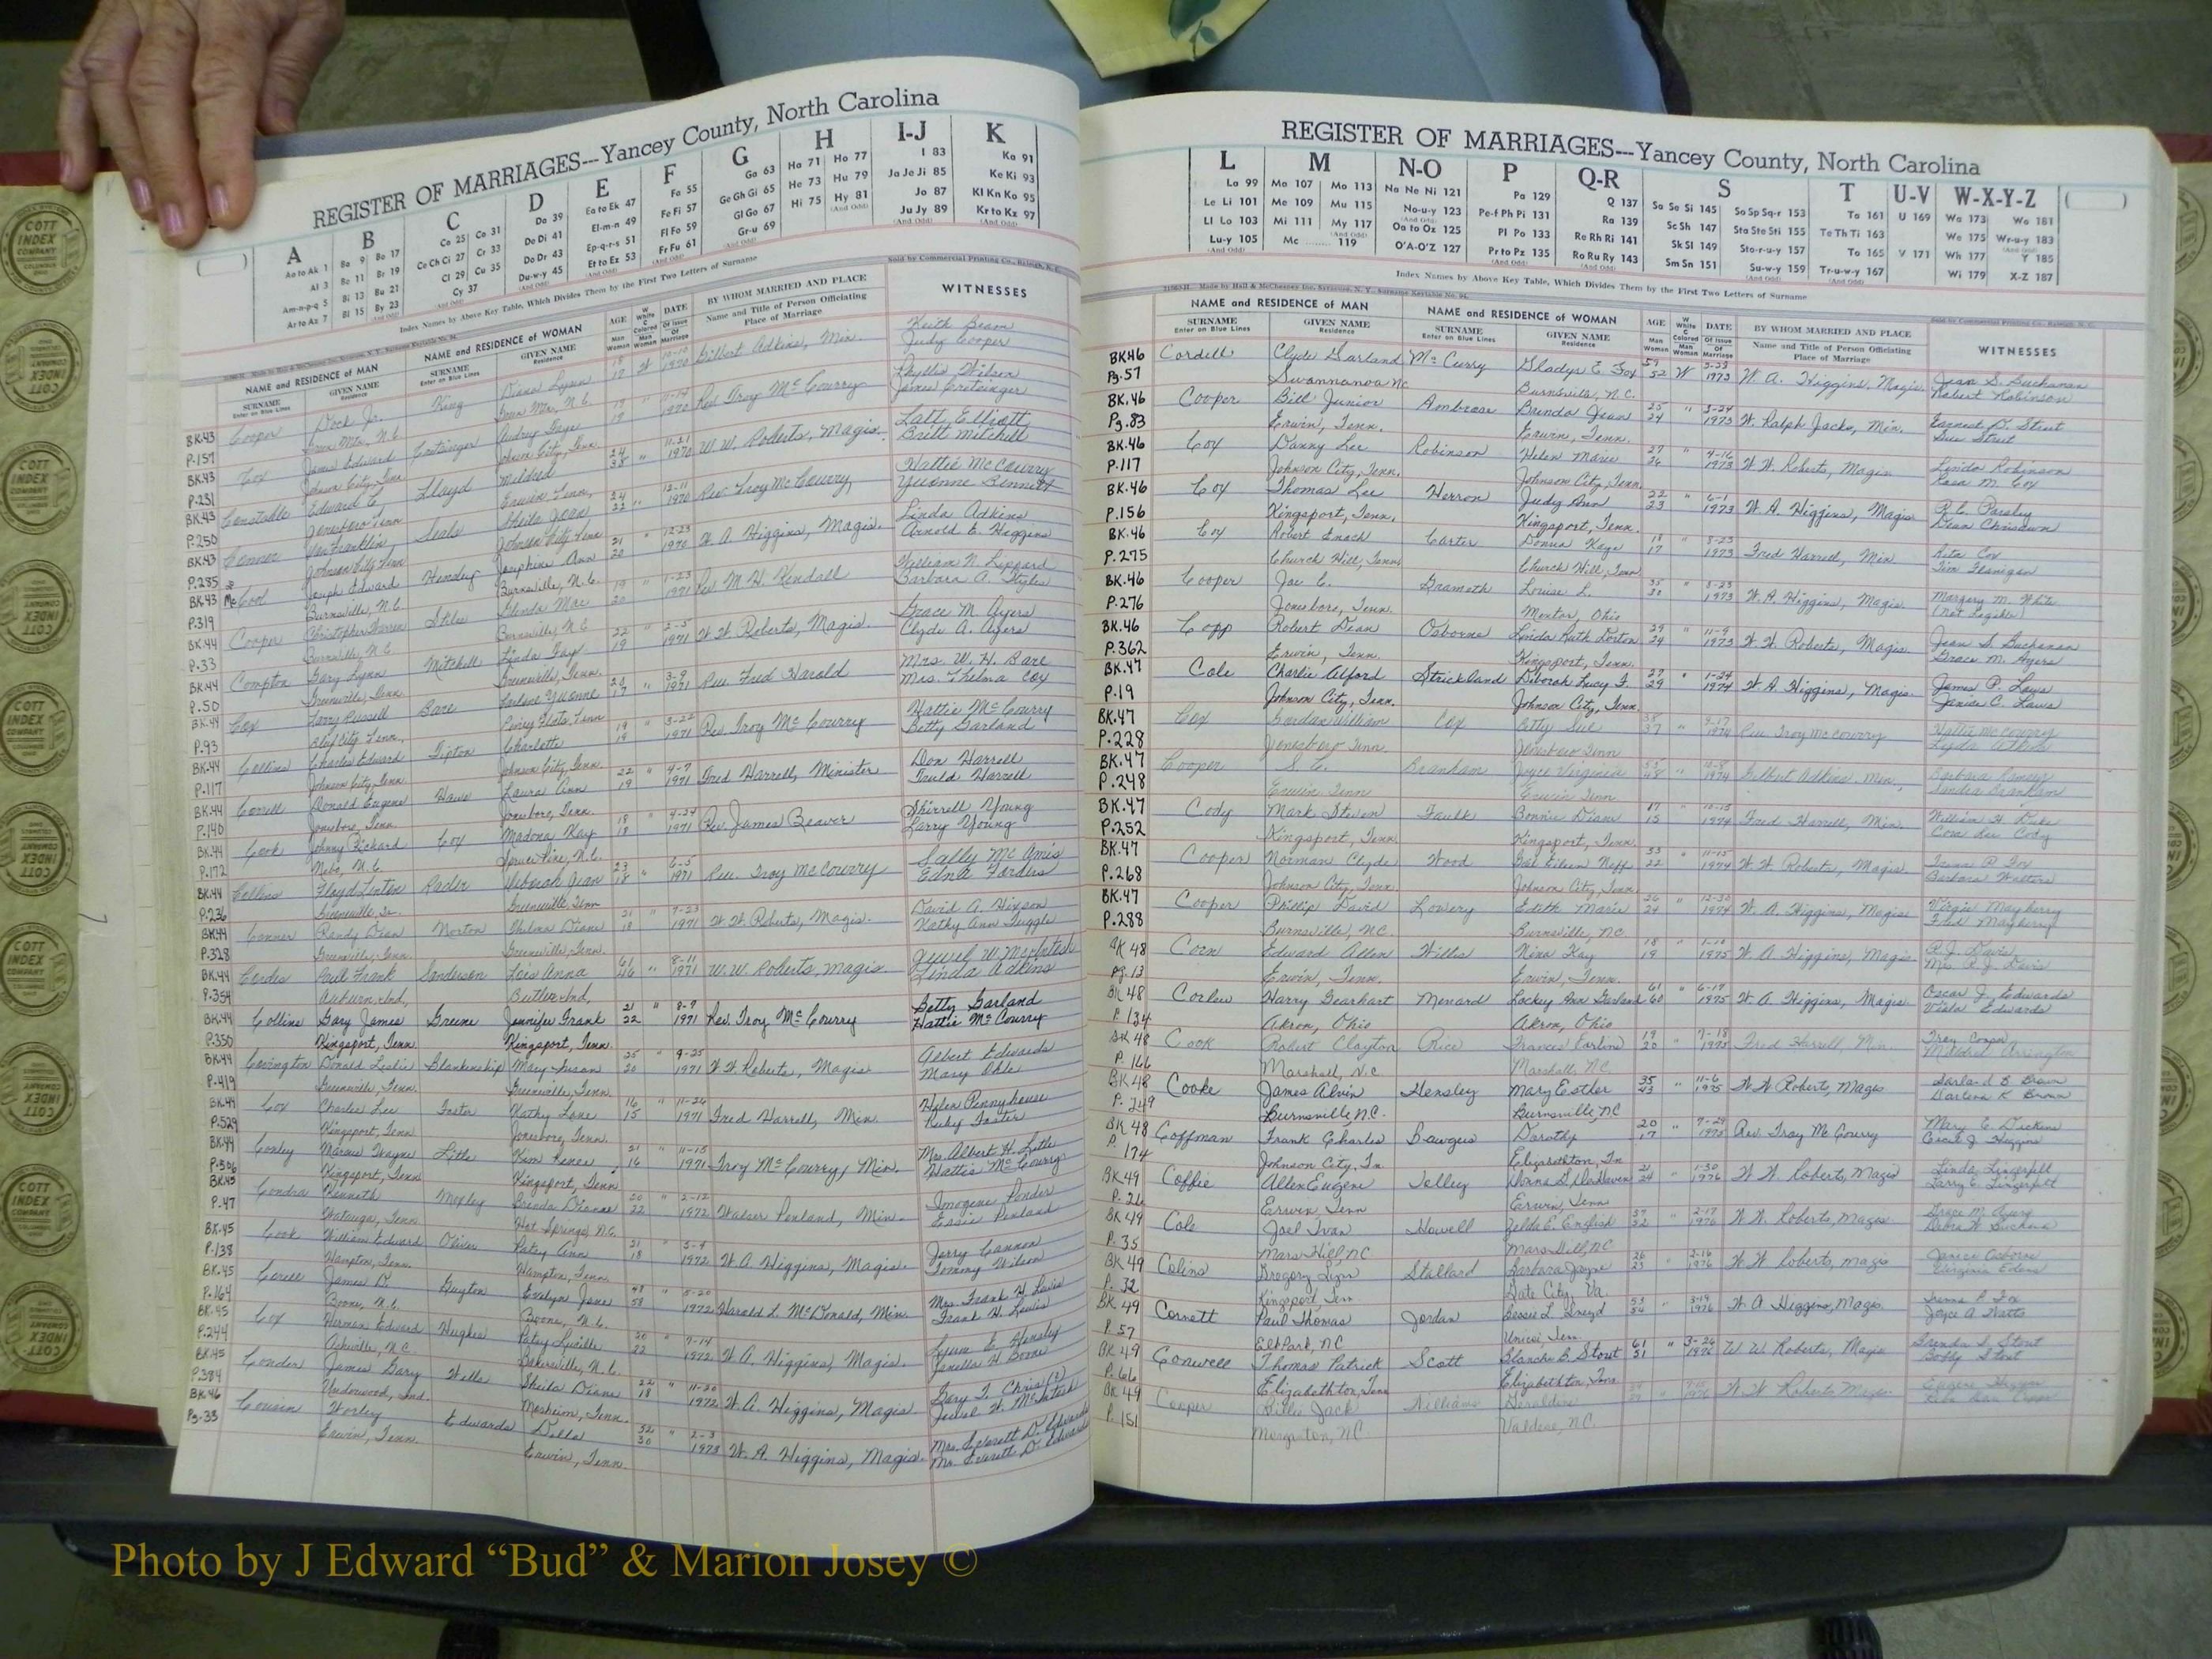 REGISTER OF MARRIAGES---Yancey County, North Carolina
A B C D E F G H I-J K
Aa to Ak 1 Ba 9 Bo 17 Ca 25 Co 31 Da 39 Ea to Ek 47 Fa 55 Ga 63 Ha 71 Ho 77 I 83 Ka 91
Al 3 Be 11 Br 19 Ce Ch Ci 27 Cr 33 De Di 41 El-m-n 49 Fe Fi 57 Ge Gh Gi 65 He 73 Hu 79 Ja Je Ji 85 Ke Ki 93
Am-n-p-q 5 Bi 13 Bu 21 Cl 29 Cu 35 Do Dr 43 Ep-q-r-s 51 Fl Fo 59 Gl Go 67 Hi 75 Hy 81 Jo 87 Kl Kn Ko 95
Ar to Az 7 Bl 15 By 23 Cy 37 Du-w-y 45 Et to Ez 53 Fr Fu 61 Gr-u 69 Ju Jy 89 Kr to Kz 97
Index Names by Above Key Table, Which Divides Them by the First Two Letters of Surname
Sold by Commercial Printing Co., Raleigh, N. C.
NAME and RESIDENCE of MAN NAME and RESIDENCE of WOMAN AGE DATE BY WHOM MARRIED AND PLACE WITNESSES
SURNAME GIVEN NAME SURNAME GIVEN NAME Name and Title of Person Officiating
Enter on Blue Lines Residence Enter on Blue Lines Residence Place of Marriage
BK43 Cooper Dock Jr. King Diana Lynn W 1970 Gilbert Adkins, Min. Keith Beam
P.157 N.C. N.C. Judy Cooper
BK43 Cox James Edward Crotzinger Audrey Gaye 19 " 11-14 1970 Rev Troy McCourry Phyllis Wilson
P.231 Johnson City, Tenn Johnson City, Tenn. 19
BK43 Constable Edward C. Lloyd Mildred 24 " 11-21 1970 W. W. Roberts, Magis. Latt Elliott
P.250 Jonesboro Tenn Erwin Tenn, 38 Britt Mitchell
BK43 Conner Franklin Seals Sheila Jean 24 " 12-11 1970 Rev. Troy McCourry, Hattie McCourry
P.285 Johnson City Tenn Johnson City Tenn 22 Yvonne Bennett
BK43 McCool Joseph Edward Hensley Josephine Ann 21 " 12-23 1970 W. A. Higgins, Magis. Linda Adkins
P.319 Burnsville, N.C. Burnsville, N.C. 20 Arnold E. Higgins
BK44 Cooper Christopher Warren Stiles Glenda Mae 19 " 1-23 1971 Rev. M. H. Kendall William N. Lippard
P.33 Burnsville, N.C. Burnsville, N.C. 20 Barbara A. Styles
BK44 Compton Gary Lynn Mitchell Linda Gay 22 " 2-5 1971 W. W. Roberts, Magis. Grace M. Ayers
P.50 Greeneville, Tenn. Greeneville, Tenn. 19 Clyde A. Ayers
BK44 Cox Larry Russell Bare Yvonne 23 " 3-9 1971 Rev. Fred Harold Mrs. W. H. Bare
P.93 Bluff City Tenn. Piney Flats, Tenn 17 Mrs. Thelma Cox
BK44 Collins Charles Edward Tipton Charlotte 19 " 3-22 1971 Rev. Troy McCourry Hattie McCourry
P.117 Johnson City, Tenn. Johnson City, Tenn. 19 Betty Garland
BK44 Correll Donald Eugene Haws Laura Ann 22 " 4-7 1971 Fred Harrell, Minister Don Harrell
P.140 Jonesboro, Tenn. Jonesboro, Tenn. 19 Harrell
BK44 Cook Johnny Richard Cox Madona Kay 18 " 4-24 1971 Rev. James Beaver Shirrell Young
P.172 Nebo, N.C. Spruce Pine, N.C. 18 Larry Young
BK44 Collins Floyd Linton Rader Deborah Jean 23 " 6-5 1971 Rev. Troy McCourry Sally McAmis
P.236 Greeneville, Tn. Greeneville, Tenn 18 Edna Fordis
BK44 Conner Randy Dean Norton Thelma Diane 21 " 7-23 1971 W. W. Roberts, Magis. David A. Hixson
P.328 Greeneville, Tenn. Greeneville, Tenn. 18 Kathy Ann Tuggle
BK44 Cordes Paul Frank Sanderson Lois Anna 61 " 8-11 1971 W. W. Roberts, Magis Jewel W. McIntosh
P.354 Auburn, Ind, Butler, Ind, 46 Linda Adkins
BK44 Collins Gary James Greene Jennifer Frank 21 " 8-9 1971 Rev. Troy McCourry Betty Garland
P.350 Kingsport, Tenn. Kingsport, Tenn. 22 Hattie McCourry
BK44 Covington Donald Leslie Blankenship Mary Susan 25 " 9-25 1971 W. W. Roberts, Magis Albert Edwards
P.419 Greenville, Tenn. Greeneville, Tenn. 20 Mary Ohle
BK44 Cox Charles Lee Foster Kathy Lane 16 " 11-26 1971 Fred Harrell, Min. Helen Pennyhouse
P.529 Kingsport, Tenn Jonesboro, Tenn. 15 Ricky Foster
BK44 Conley Marcus Wayne Little Kim Renee 21 " 11-15 1971 Troy McCourry, Min. Mrs. Albert H. Little
P.506 Kingsport, Tenn Kingsport, Tenn 16 Hattie McCourry
BK45 Condra Kenneth Mopley Brenda Dianne 20 " 2-12 1972 Walser Penland, Min. Imogene Ponder
P.47 Watauga, Tenn Hot Springs, N.C. 22 Essie Penland
BK.45 Cook William Edward Oliver Patsy Ann 21 " 3-4 1972 W. A. Higgins, Magis. Jerry Cannon
P.138 Hampton, Tenn. Hampton, Tenn. 18 Tommy Wilson
BK.45 Corell James D. Guyton Evelyn Jane 48 " 5-20 1972 Harold L. McDonald, Min. Mrs. Frank H. Lewis
P.164 Boone, N.C. Boone, N.C. 58 Frank H. Lewis
BK.45 Cox Herman Edward Hughes Patsy Lucille 20 " 7-14 1972 W. A. Higgins, Magis. Lynn E. Hensley
P.244 Asheville, N.C. Bakersville, N.C. 22 Janella H. Boone
BK45 Conder James Gary Wells Sheila Diane 22 " 11-20 1972 W. A. Higgins, Magis. Gary T. Chris(?)
P.384 Underwood, Ind. Mosheim, Tenn. 18 Jewel W. McIntosh
BK46 Cousin Worley Edwards Della 32 " 2-3 1973 W. A. Higgins, Magis. Mrs. Everett D. Edwards
Pg.33 Erwin, Tenn. Erwin, Tenn. 30 Mr. Everett D. Edwards
REGISTER OF MARRIAGES---Yancey County, North Carolina
L M N-O P Q-R S T U-V W-X-Y-Z
La 99 Ma 107 Mo 113 Na Ne Ni 121 Pa 129 Q 137 Sa Se Si 145 So Sp Sq-r 153 Ta 161 U 169 Wa 173 Wo 181
Le Li 101 Me 109 Mu 115 No-u-y 123 Pe-f Ph Pi 131 Ra 139 Sc Sh 147 Sta Ste Sti 155 Te Th Ti 163 We 175 Wr-u-y 183
Ll Lo 103 Mi 111 My 117 Oa to Oz 125 Pl Po 133 Re Rh Ri 141 Sk Sl 149 Sto-r-u-y 157 To 165 V 171 Wh 177 Y 185
Lu-y 105 Mc 119 O'A-O'Z 127 Pr to Pz 135 Ro Ru Ry 143 Sm Sn 151 Su-w-y 159 Tr-u-w-y 167 Wi 179 X-Z 187
Index Names by Above Key Table, Which Divides Them by the First Two Letters of Surname
NAME and RESIDENCE of MAN NAME and RESIDENCE of WOMAN AGE DATE BY WHOM MARRIED AND PLACE WITNESSES
SURNAME GIVEN NAME SURNAME GIVEN NAME Name and Title of Person Officiating
Enter on Blue Lines Residence Enter on Blue Lines Residence Place of Marriage
BK46 Cordell Clyde Garland McCurry Gladys E. Fox 59 W 1973 W. A. Higgins, Magis Jean S. Buchanan
Pg.57 Swannanoa NC Burnsville, N.C. 52 Robert Robinson
BK.46 Cooper Bill Junior Ambrose Brenda Jean 25 " 3-24 1973 W. Ralph Jacks, Min. Earnest D. Street
Pg.83 Erwin, Tenn. Erwin, Tenn. 24 Street
BK.46 Cox Danny Lee Robinson Helen Marie 27 " 4-16 1973 W. W. Roberts, Magis Linda Robinson
P.117 Johnson City, Tenn. Johnson City, Tenn. 26 M. Cox
BK.46 Cox Thomas Lee Herron Judy Ann 22 " 6-1 1973 W. A. Higgins, Magis R. C. Presley
P.156 Kingsport, Tenn. Kingsport, Tenn. 23 Dean
BK.46 Cox Robert Enoch Carter Donna Kaye 18 " 8-23 1973 Fred Harrell, Min. Rita Cox
P.275 Church Hill, Tenn. Church Hill, Tenn. 17 Tim Flanigan
BK.46 Cooper Joe C. Gramoth Louise L. " 1973 W. A. Higgins, Magis. Margery M. White
P.276 Jonesboro, Tenn. Mentor, Ohio (Not Legible)
BK.46 Copp Robert Dean Osborne Linda Ruth Dorton 29 " 11-9 1973 W. W. Roberts, Magis Jean S. Buchanan
P.362 Erwin, Tenn. Kingsport, Tenn. 29 Grace M. Ayers
BK.47 Cole Charlie Alford Strickland Deborah Lucy F. 27 " 1-24 1974 W. A. Higgins, Magis. James P. Laws
P.19 Johnson City, Tenn. Johnson City, Tenn. 29 Janice C. Laws
BK.47 Cox Gordon William Cox Betty Sue 38 " 9-17 1974 Rev. Troy McCourry Hattie McCourry
P.228 Jonesboro Tenn. Jonesboro Tenn 37 Lyda Atkins
BK.47 Cooper S. C. Branham Joyce Virginia " 1974 Gilbert Adkins, Min. Barbara Ramsey
P.248 Erwin Tenn Erwin Tenn 48 Branham
BK.47 Cody Mark Steven Faulk Bonnie Diane 17 " 10-15 1974 Fred Harrell, Min. William H. Duke
P.252 Kingsport, Tenn. Kingsport, Tenn. 15 Cora Lee Cody
BK.47 Cooper Norman Clyde Wood Gail Eileen Neff 33 " 11-15 1974 W. W. Roberts, Magis. Fox
P.268 Johnson City, Tenn. Johnson City, Tenn. 22 Barbara Watters
BK.47 Cooper Phillip David Lowery Edith Marie 26 " 12-30 1974 W. A. Higgins, Magis Virgie Mayberry
P.288 Burnsville, N.C. Burnsville, NC 24 Mayberry
BK 48 Corn Edward Allen Willis Nina Kay 18 " 1975 W. A. Higgins, Magis. R. J. Davis
Pg.13 Erwin, Tenn. Erwin, Tenn. 19 Mrs. R. J. Davis
BK 48 Corlew Harry Gearhart Menard Lockey Ann Garland 61 " 6-17 1975 W. A. Higgins, Magis. Oscar J. Edwards
P.134 Akron, Ohio Akron, Ohio 60 Viola Edwards
BK 48 Cook Robert Clayton Rice Frances Earline 19 " 7-18 1975 Fred Harrell, Min. Troy Cooper
P. 166 Marshall, N.C. Marshall, N.C. 20 Mildred Arrington
BK 48 Cooke James Alvin Hensley Mary Estler 35 " 11-6 1975 W. W. Roberts, Mages Garland B. Brown
P. 249 Burnsville, N.C. Burnsville, NC 43 Darlena K Brown
BK 48 Coffman Frank Charles Bawgus Dorothy 20 " 7-29 1975 Rev. Troy McCourry Mary E. Dickens
P. 174 Johnson City, Tn. Elizabethton, Tn 17 J. Higgins
BK49 Coffie Allen Eugene Jelley Donna 21 " 1-30 1976 W. W. Roberts, Magis Linda Lingerfelt
P. 26 Erwin, Tenn Erwin, Tenn 24 Larry E. Lingerfelt
BK 49 Cole Joel Ivan Howell Zelda E. English 37 " 2-17 1976 W. W. Roberts, Mages Grace M. Ayers
P. 35 Mars Hill, NC Mars Hill, NC 32
BK 49 Colins Gregory Lynn Stallard Barbara Jayne 26 " 2-16 1976 W. W. Roberts, Magis Janice Osborne
P. 32 Kingsport Tenn Gate City, Va. 25 Virginia Edens
BK 49 Cornett Paul Thomas Jordan Bessie L. 53 " 3-19 1976 W. A Higgins, Magis. Fox
P. 57 Elk Park, NC Unicoi, Tenn 54 Joyce A Watts
BK 49 Conwell Thomas Patrick Scott Blanche B. Stout 61 " 3-26 1976 W W Roberts, Magis Brenda S. Stout
P. 66 Elizabethton, Tenn Elizabethton, Tenn 51 Bobby Stout
BK 49 Cooper Billie Jack Williams Geraldine " 1976 W. W. Roberts Mages
P. 151 Morganton, NC Valdese, N.C.
COTT INDEX COMPANY
Photo by J Edward “Bud” & Marion Josey ©